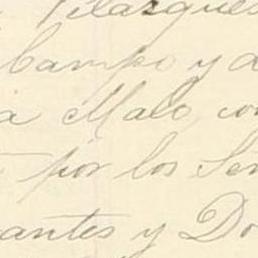 Velazques
Campo y d
a Malo, con
por los Señ
antes y Do